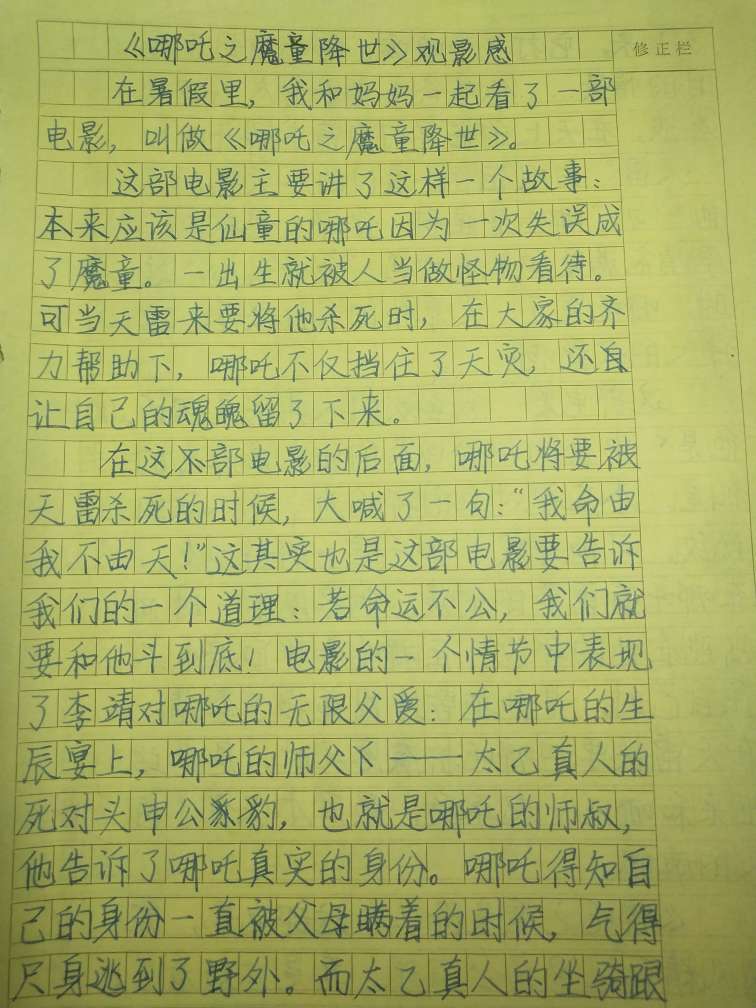 《哪吒之魔童降世》观影感
修正栏
在暑假里，我和妈妈一起看了一部
电影，叫做《哪吒之魔童降世》。
这部电影主要讲了这样一个故事：
本来应该是仙童的哪吒因为一次失误成
了魔童。一出生就被人当做怪物看待。
可当天雷来要将他杀死时，在大家的齐
力帮助下，哪吒不仅挡住了天灾，还自
让自己的魂魄留了下来。
在这不部电影的后面，哪吒将要被
天雷杀死的时候，大喊了一句：“我命由
我不由天！”这其实也是这部电影要告诉
我们的一个道理：若命运不公，我们就
要和他斗到底！电影的一个情节中表现
了李靖对哪吒的无限父爱：在哪吒的生
辰宴上，哪吒的师父下——太乙真人的
死对头申公豹，也就是哪吒的师叔，
他告诉了哪吒真实的身份。哪吒得知自
己的身份一直被父母瞒着的时候，气得
只身逃到了野外。而太乙真人的坐骑跟